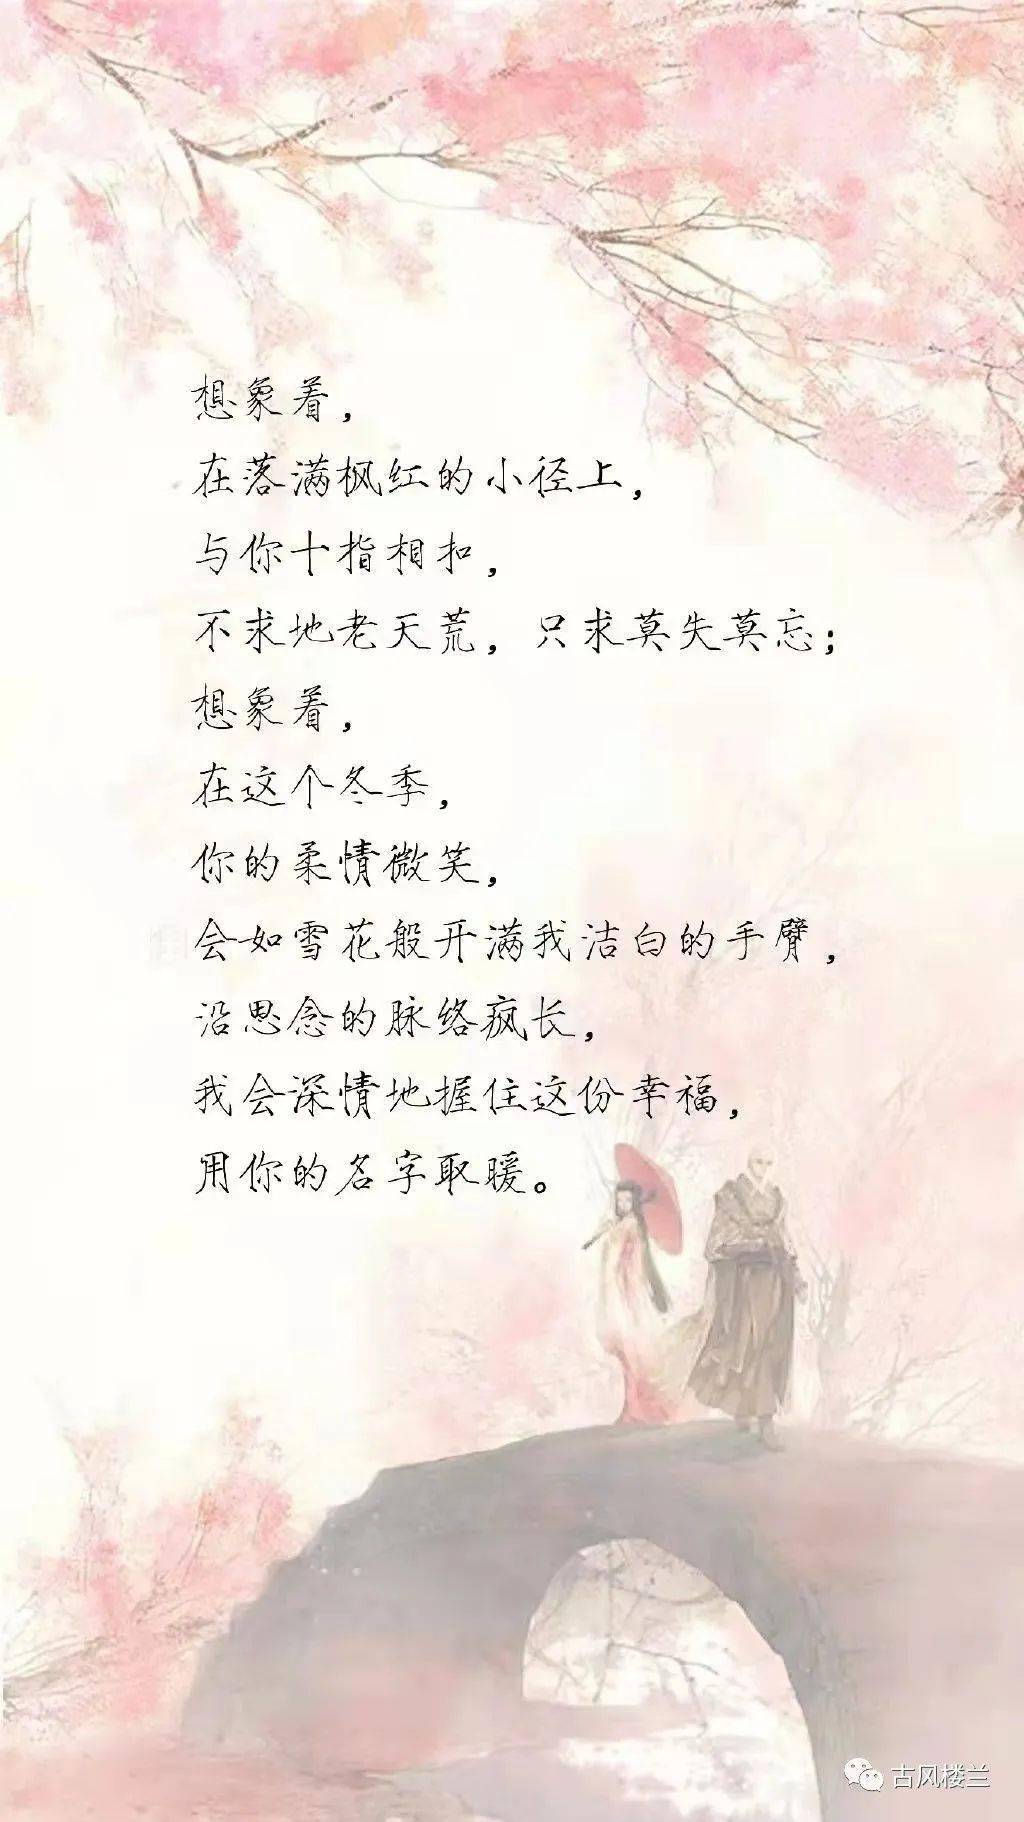 想象着，
在落满枫红的小径上，
与你十指相扣，
不求地老天荒，只求莫失莫忘；
想象着，
在这个冬季，
你的柔情微笑，
会如雪花般开满我洁白的手臂，
沿思念的脉络疯长，
我会深情地握住这份幸福，
用你的名字取暖。
古风楼兰